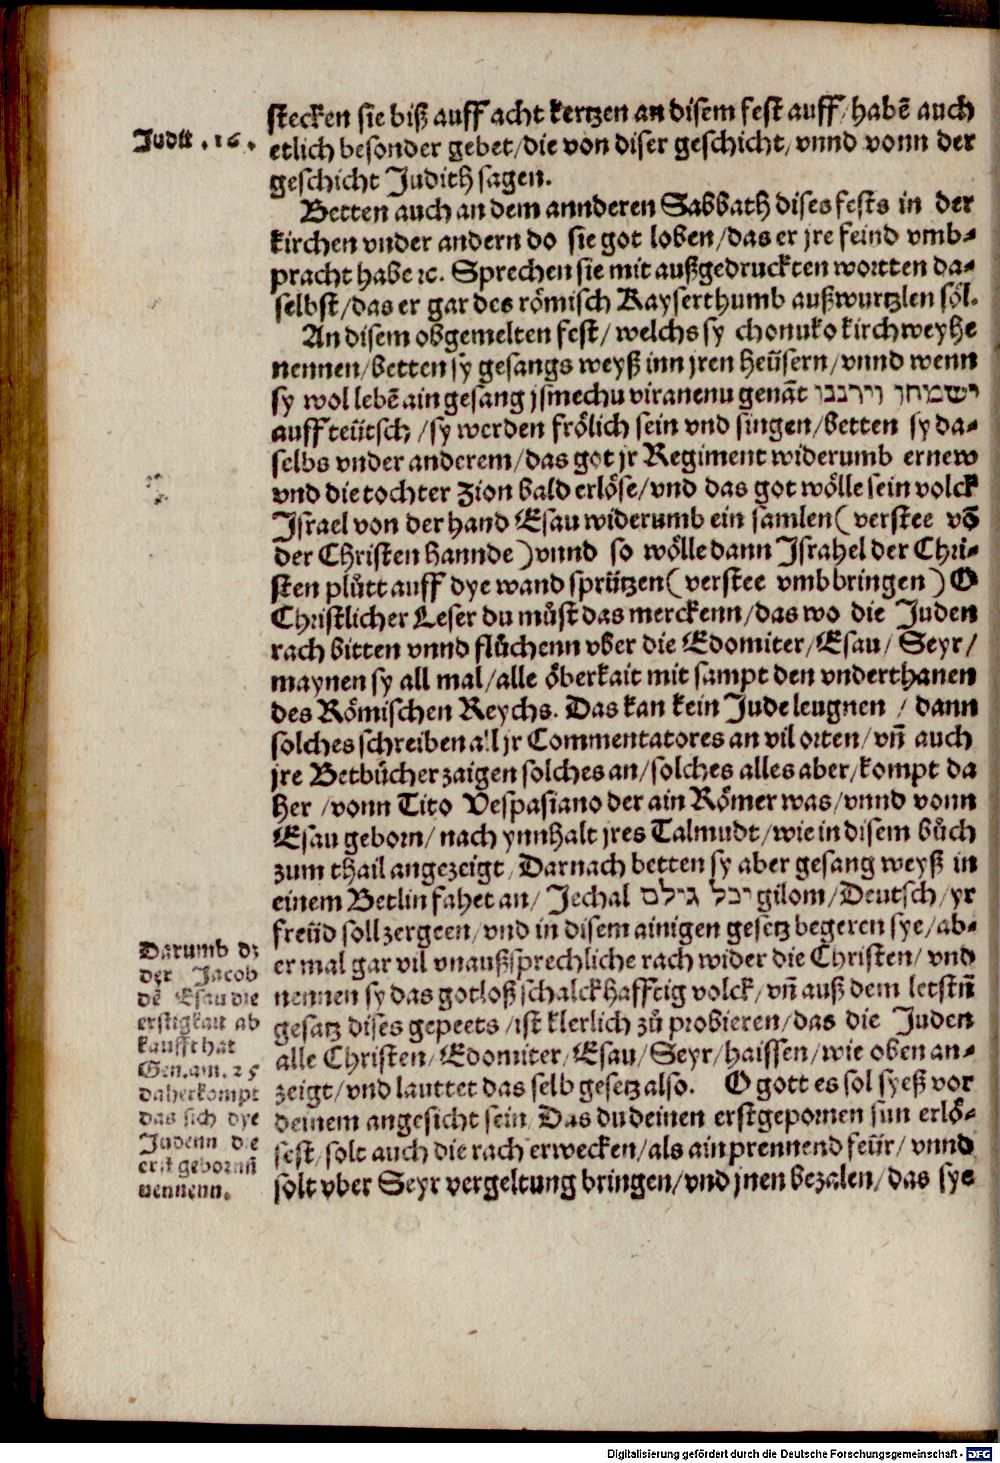 stecken sie biß auff acht kertzen an disem fest auff/habē auch
Judit .16.
etlich besonder gebet/die von diser geschicht/vnnd vonn der
geschicht Judith sagen.
Betten auch an dem annderen Sabbath dises fests in der
kirchen vnder andern do sie got loben/das er jre feind vmb-
pracht habe ꝛc. Sprechen sie mit außgedruckten wortten da-
selbst/das er gar des römisch Kayserthumb außwurtzlen söl.
An disem obgemelten fest/welchs sy chonuko kirchweyhe
nennen/betten sy gesangs weyß inn jren heüsern/vnnd wenn
sy wol lebē ain gesang jsmechu viranenu genāt ישמחו וירננו
auff teütsch/sy werden frölich sein vnd singen/betten sy da-
selbs vnder anderem/das got jr Regiment widerumb ernew
vnd die tochter Zion bald erlöse/vnd das got wölle sein volck
Israel von der hand Esau widerumb ein samlen(verstee võ
der Christen hannde)vnnd so wölle dann Israhel der Chri-
sten plůtt auff dye wand sprützen(verstee vmbbringen)O
Christlicher Leser du můst das merckenn/das wo die Juden
rach bitten vnnd flůchenn vber die Edomiter/Esau/Seyr/
maynen sy all mal/alle öberkait mit sampt den vnderthanen
des Römischen Reychs. Das kan kein Jude leugnen/dann
solches schreiben all jr Commentatores an vil orten/vñ auch
jre Betbücher zaigen solches an/solches alles aber/kompt da
her/vonn Tito Vespasiano der ain Römer was/vnnd vonn
Esau geborn/nach ynnhalt jres Talmudt/wie in disem bůch
zum thail angezeigt/Darnach betten sy aber gesang weyß in
einem Betlin fahet an/Jechal יכל גילם gilom/Deutsch/yr
freüd soll zergeen/vnd in disem ainigen gesetz begeren sye/ab-
er mal gar vil vnaußsprechliche rach wider die Christen/vnd
nennen sy das gotloß schalckhafftig volck/vñ auß dem letstñ
gesatz dises gepeets/ist klerlich zů probieren/das die Juden
alle Christen/Edomiter/Esau/Seyr/haissen/wie oben an-
zeigt/vnd lauttet das selb gesetz also. O gott es sol syeß vor
deinem angesicht sein/Das du deinen erstgepornen sun erlö-
sest/solt auch die rach erwecken/als ain prennend feür/vnnd
solt vber Seyr vergeltung bringen/vnd jnen bezalen/das sye
Darumb dz
der Jacob
dē Esau die
erstigkait ab
kaufft hat
Gen. am. 25
daher kompt
das sich dye
Judenn die
erst gebornñ
nennenn.
Digitalisierung gefördert durch die Deutsche Forschungsgemeinschaft - DFG